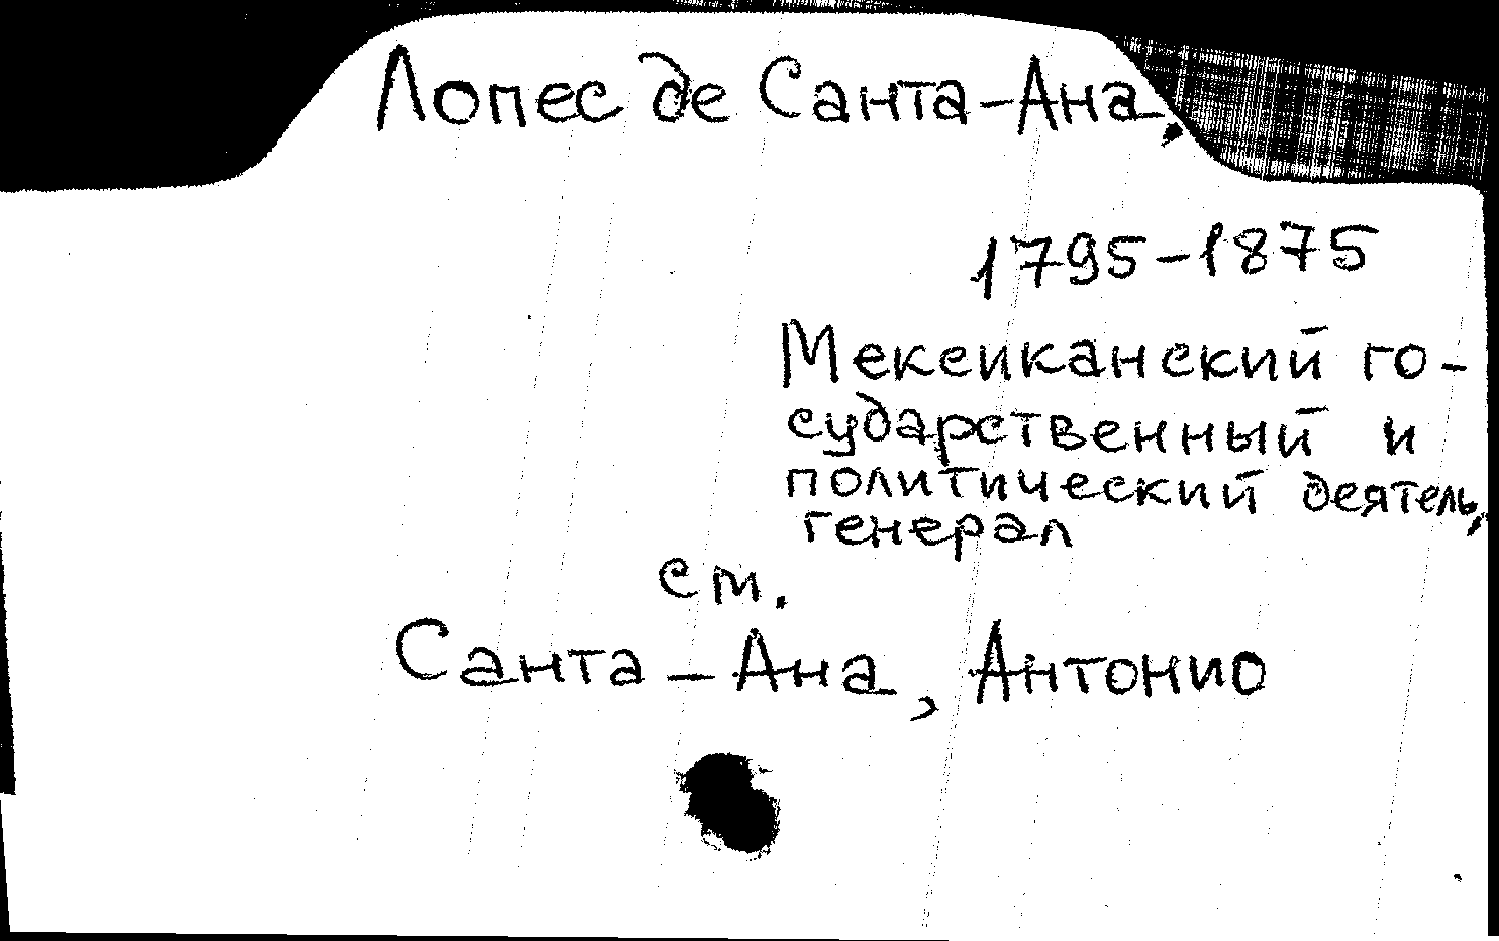 Лопес де Санта-Ана,
1795-1875
Мексиканский го-
сударственный и
политический деятель,
генерал
см.
Санта-Ана, Антонио